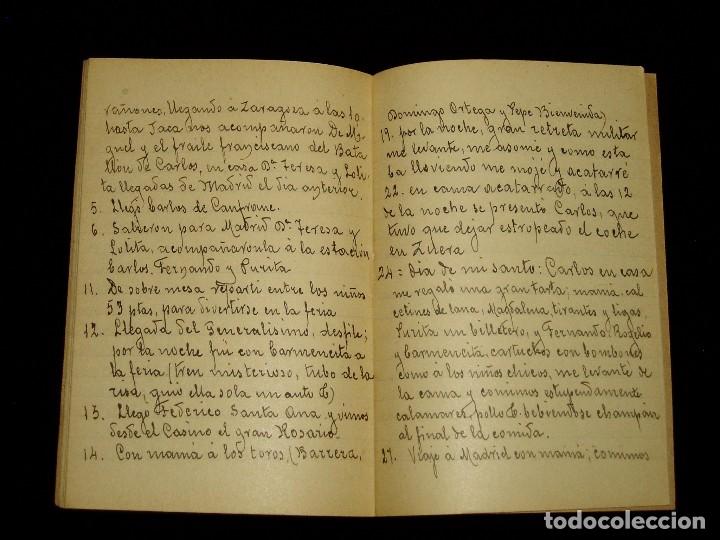 rañones, llegando á Zaragoza á las 10
hasta Jaca nos acompañaron De Mi-
guel y el fraile franciscano del Bata
llón de Carlos, en casa Dª. Teresa y Loli
ta llegadas de Madrid el dia anterior.
5. Llegó Carlos de Canfranc.
6. Salieron para Madrid Dª. Teresa y
Lolita, acompañaronla á la estación
Carlos, Fernando y Purita
11. De sobre mesa repartí entre los niños
53 ptas, para divertirse en la feria
12. Llegada del Generalisimo, desfile;
por la noche fui con Carmencita a
la feria (tren misterioso, tubo de la
risa, guió ella sola un auto &)
13. Llegó Federico Santa Ana y vimos
desde el Casino el gran Rosario.
14. Con mamá á los toros, (Barrera,
Domingo Ortega y Pepe Bienvenida)
19. por la noche, gran retreta militar
me levante, me asomé y como esta
ba lloviendo me mojé y acatarré
22. en cama acatarrado, á las 12
de la noche se presentó Carlos, que
tuvo que dejar estropeado el coche
en Zuera
24= Dia de mi santo: Carlos en casa
me regaló una gran tarta; mamá, cal
cetines de lana, Magdalena tirantes y ligas,
Purita un billetero, y Fernando, Rogelio
y Carmencita, cartuchos con bombones
como á los niños chicos, me levante de
la cama y comimos estupendamente
calamares, pollo &. bebiendose champán
al final de la comida.
27. Viaje á Madrid con mamá; comimos
todocoleccion.net